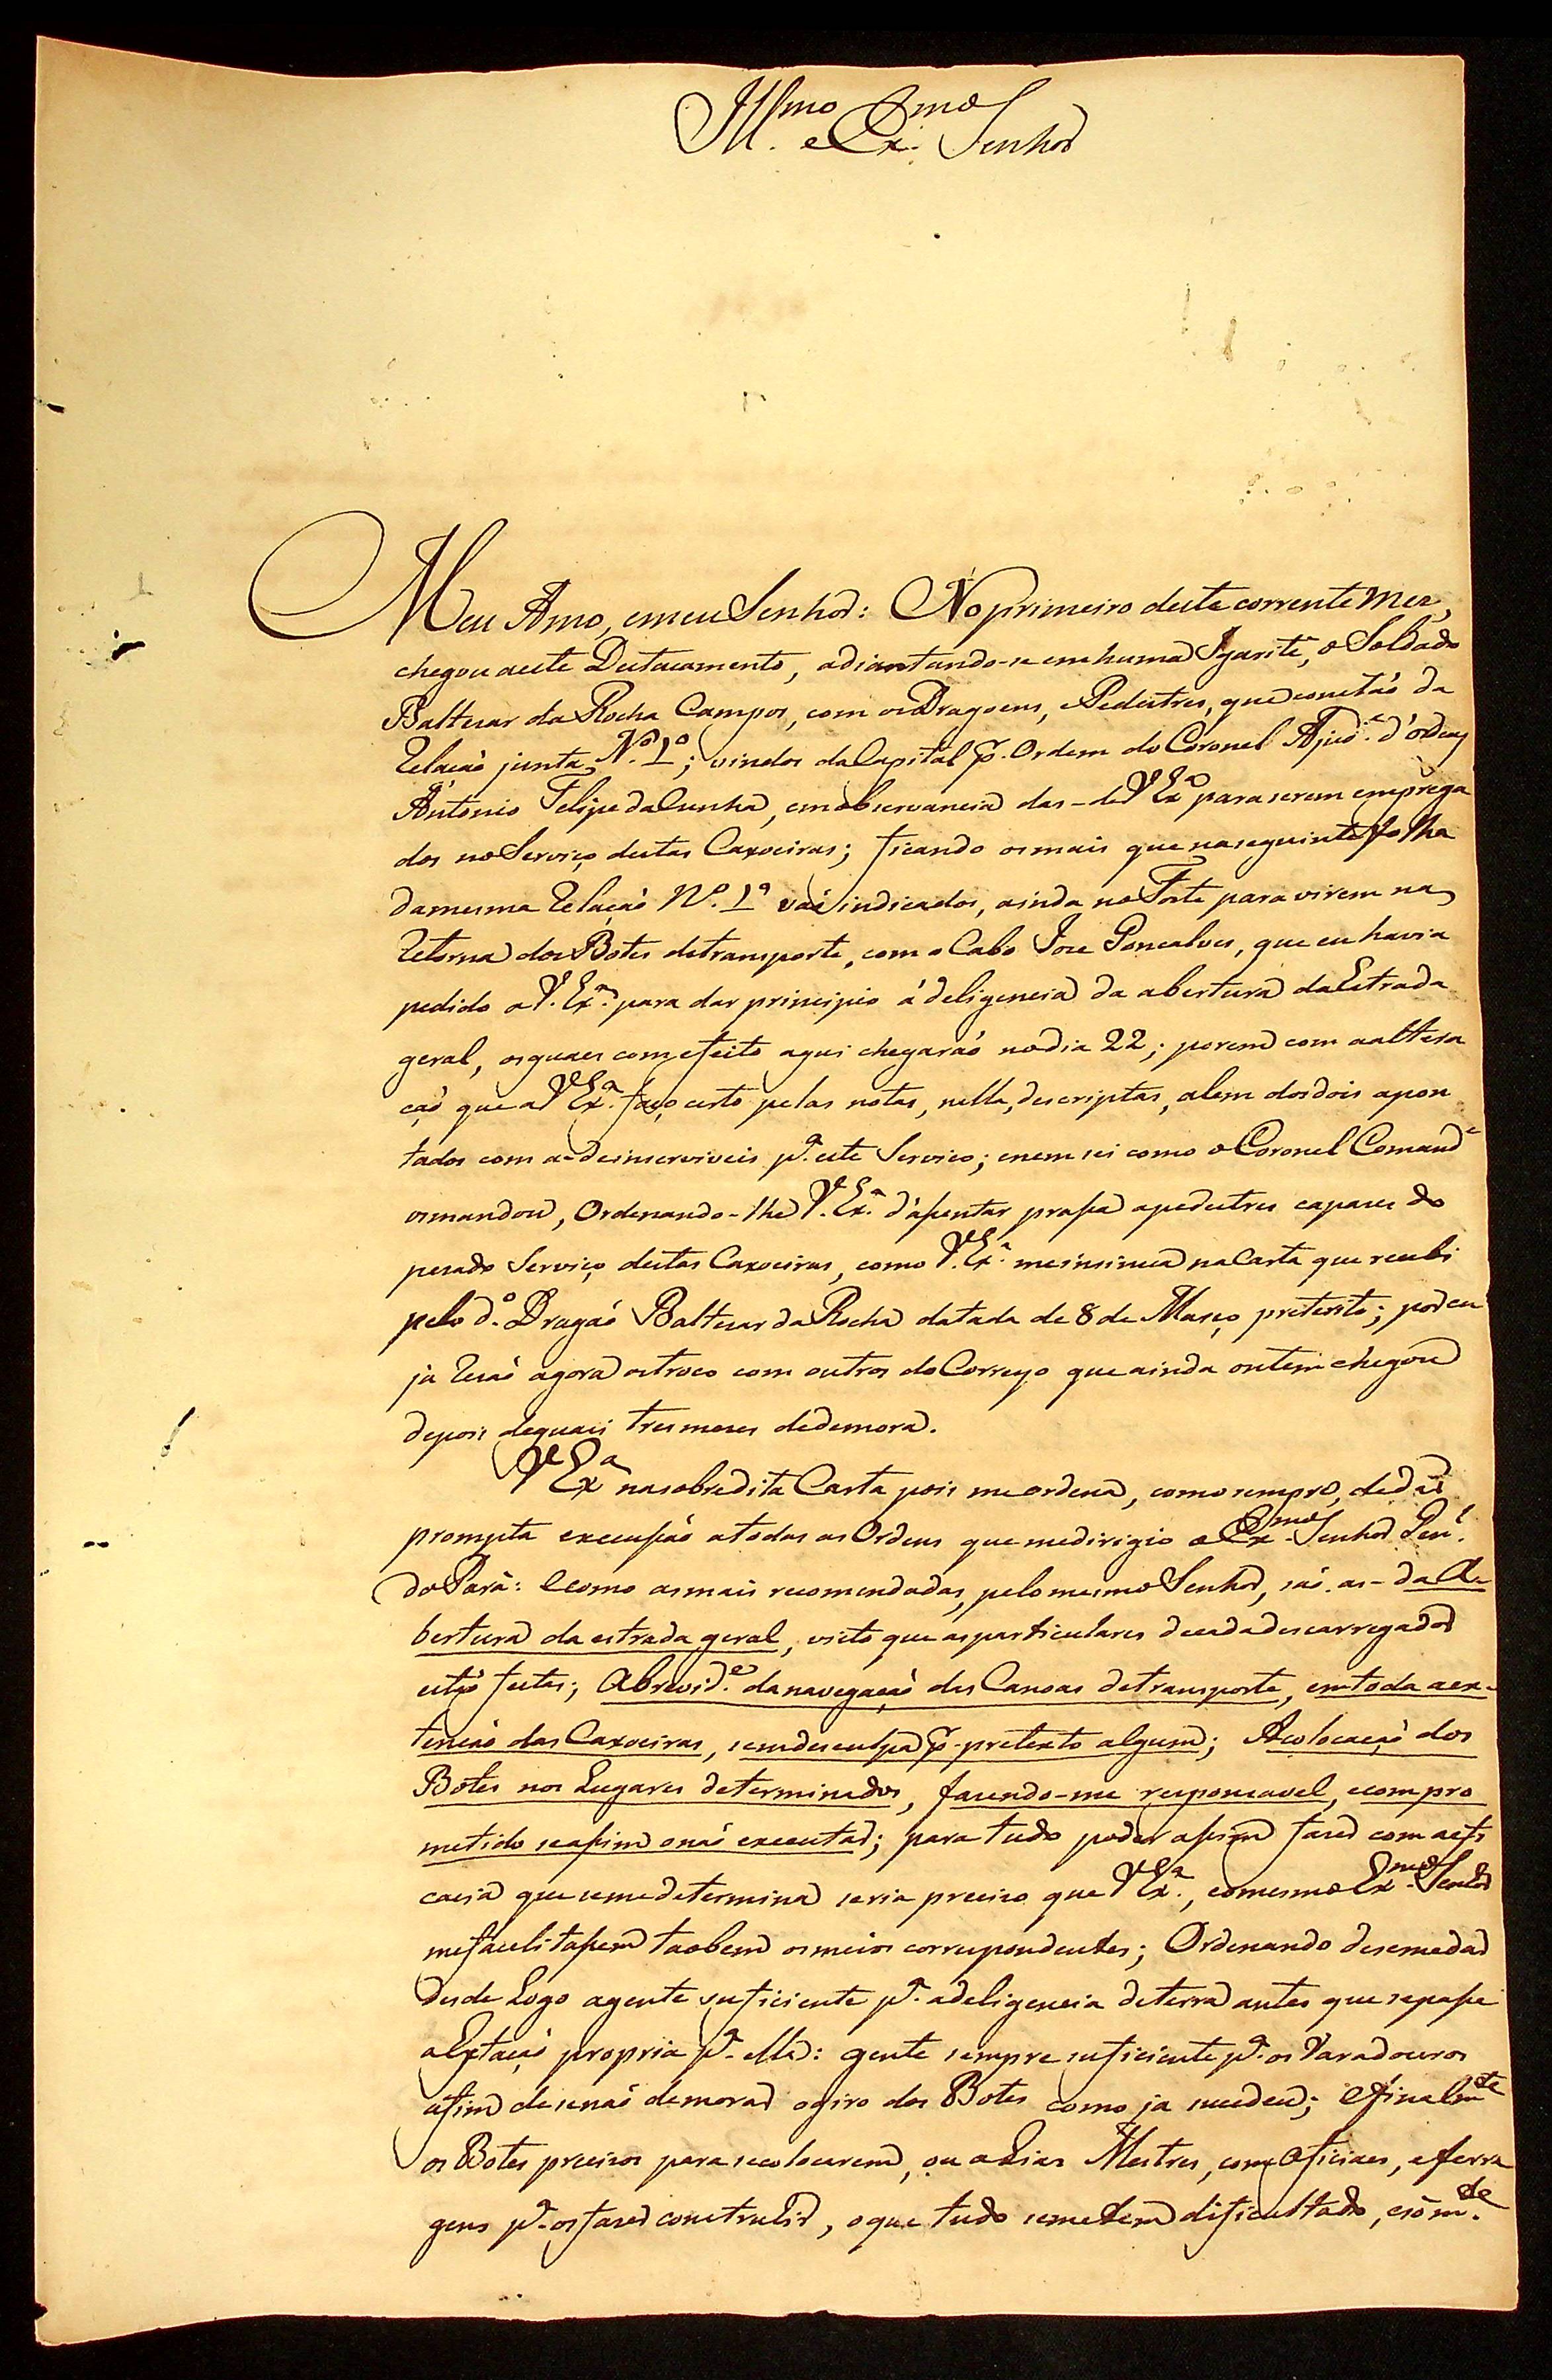 Ill.mo e Ex.mo Senhor
Meu Amo, emeu Senhor: No primeiro deste corrente Mez,
chegou aeste Destacamento, adiantando-se em huma Ygarité, o Soldado
Baltezar da Rocha Campos, com os Dragoens, e Pedestres, que constão da
Relação junta N.º 1º; vindos da Capital p.r Ordem do Coronel Ajud.e d'ordens
Antonio Felipe da Cunha, em observancia das - de V Ex.a para serem emprega
dos no Serviço destas Caxoeiras; ficando os mais que na seguinte folha
da mesma Relação N.º 1º vão indicados, ainda no Forte para virem na
Retorna dos Botes de transporte, com o Cabo Joze Goncalves, que eu havia
pedido a V. Ex.a para dar principio á deligencia da abertura da Estrada
geral, os quaes com efeito aqui chegarão no dia 22; porem com a altera
ção que a V Ex.a faço certo pelas notas, nella, descriptas, alem dos dois apon
tados com a - de inserviveis p.a este Serviço; e nem sei como o Coronel Comand.e
os mandou, Ordenando-lhe V. Ex.a d'aSentar praSa a pedestres capazes do
pezado Serviço destas Caxoeiras, como V. Ex.a me insinua na Carta que recebi
pelo d.o Dragaõ Baltezar da Rocha datada de 8 de Março preterito; por cu
ja Rezaõ agora os troco com outros do Correyo que ainda ontem chegou
depois de quazi tres mezes de demora.
V Ex.a na sobredita Carta pois me ordena, como sempre, de dar
prompta execuSão a todas as Ordens que me dirigio o Ex.mo Senhor Gen.l
do Pará: E como as mais recomendadas, pelo mesmo Senhor, são. as - da A-
bertura da estrada geral, visto que as particulares de cada descarregador
estão feitas; Abrevid.e da navegação das Canoas de transporte, em toda a ex-
tenção das Caxoeiras, sem desculpa p.r pretexto algum; A colocação dos
Botes nos Lugares determinados, fazendo-me responsavel, e compro
metido se aSim o não executar; para tudo poder aSim fazer com a efi
cacia que se me determina seria precizo que V Ex.a, e o mesmo Ex.mo Senhor
me facelitaSem taobem os meios correspondentes; Ordenando de se me dar
desde Logo a gente suficiente p.a a deligencia de terra antes que se paSe
a Estação propria p.a ella: gente sempre suficiente p.a os Varadouros
afim de se não demorar o giro dos Botes como ja sucedeu; E finalm.te
os Botes precizos para se colocarem, ou aliàs Mestres, com Oficiaes, e ferra
gens p.a os fazer construhir, o que tudo se me tem dificultado, e sòm.te